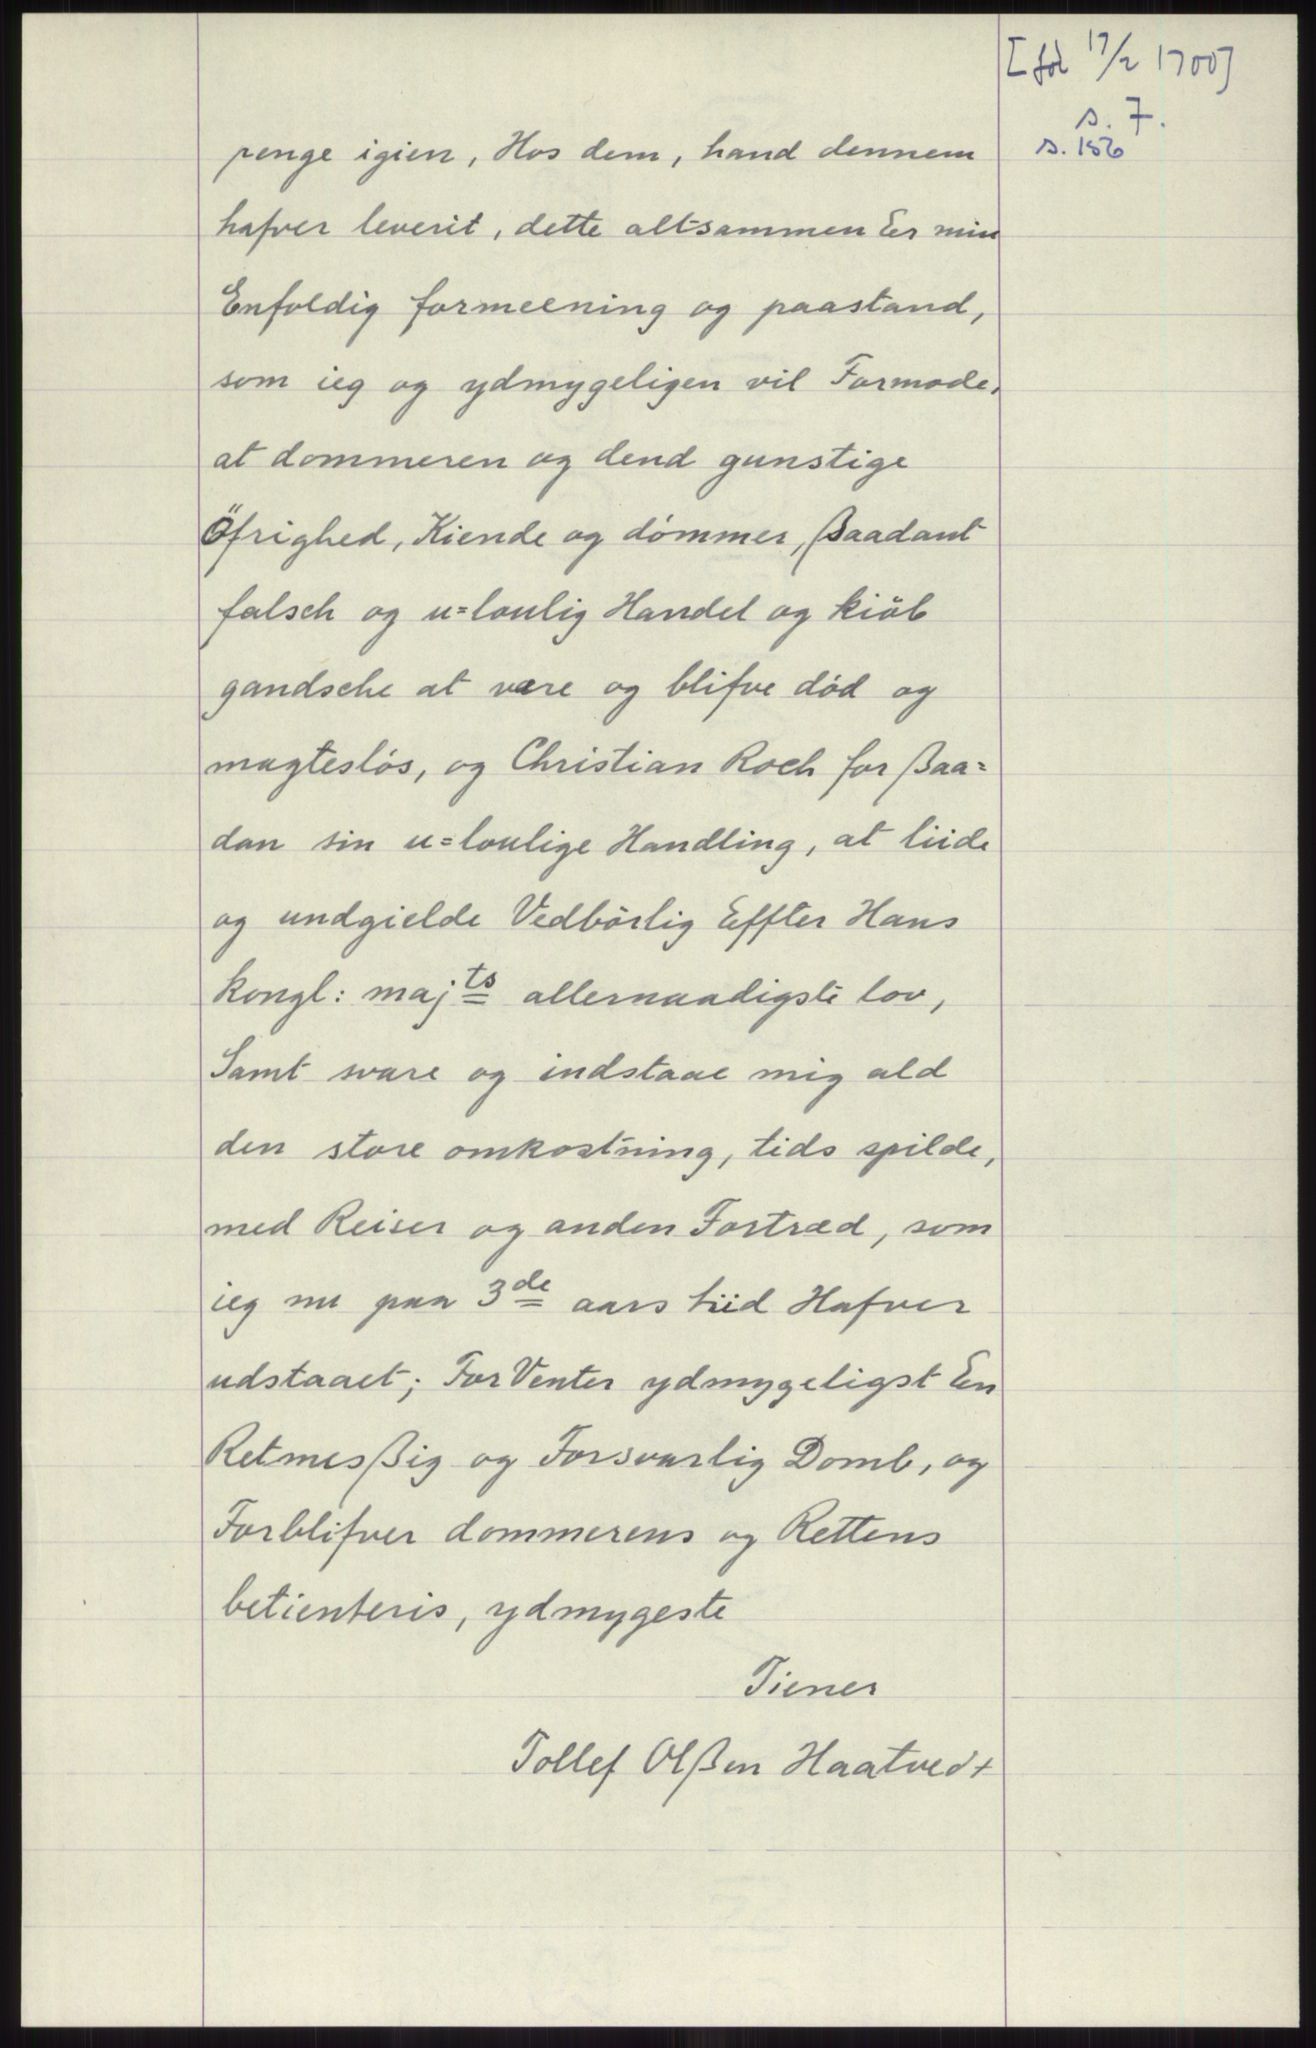 [før 17/2 1700]
s. 7.
s. 186
penge igien, Hos dem, hand dennem
hafver leverit, dette alt-sammen Er min
Enfoldig formeening og paastand,
som ieg og ydmygeligen vil Formode,
at dommeren og dend gunstige
Öfrighed, Kiende og dömmer, ßaadant
falsch og u=loulig Handel og kiöb
gandsche at være og blifve död og
magteslös, og Christian Roch for ßaa=
dan sin u=loulige Handling, at liide
og undgielde Vedbörlig Effter Hans
kongl: majts allernaadigste lov,
Samt svare og indstaae mig ald
den store omkostning, tids spilde,
med Reiser og anden Fortræd, som
ieg nu paa 3de aars tiid Hafver
udstaaet; ForVenter ydmygeligst En
Retmesßig og Forsvarlig Domb, og
Forblifver dommerens og Rettens
betienteris, ydmygeste
Tiener
Tollef Olßen Haatvedt